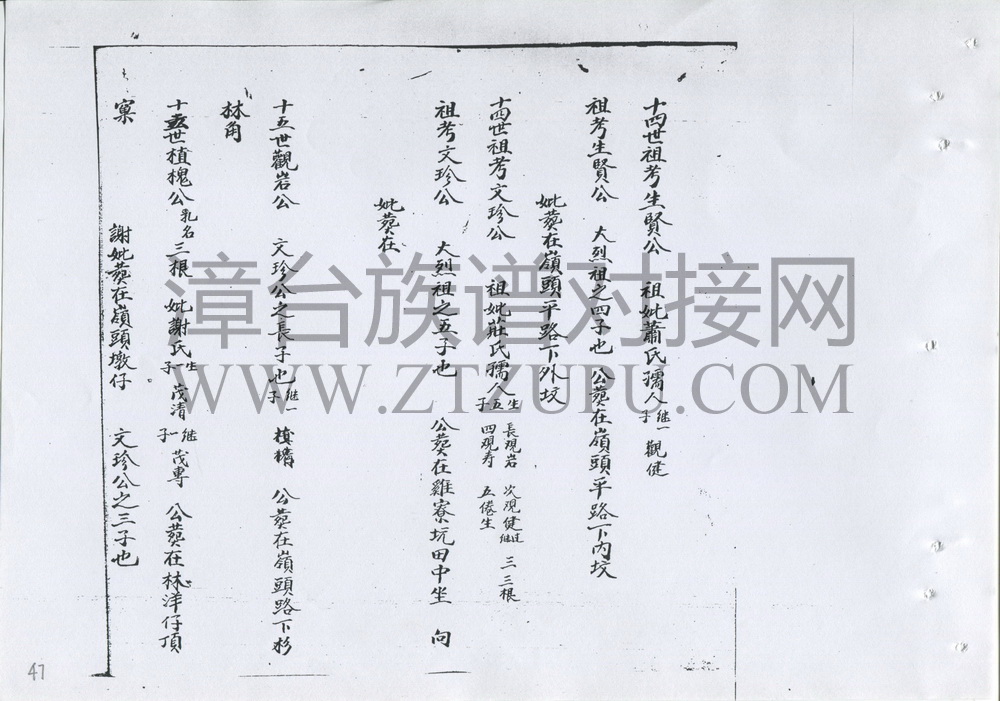 十四世祖考生賢公 祖妣蕭氏孺人继一子 觀健
祖考生賢公 大烈祖之四子也 公葬在嶺頭平路下内坟
妣葬在嶺頭平路下外坟
十四世祖考文珍公 祖妣莊氏孺人生五子 長观岩 次观健 三三根 四观寿 五倦生
祖考文珍公 大烈祖之五子也 公葬在雞寮坑田中坐 向
妣葬在
十五世觀岩公 文珍公之長子也继一子 公葬在嶺頭路下杉
林角
十五世植槐公乳名三根 妣謝氏生一子茂清 继一子茂專 公葬在林洋仔頂
窠 謝妣葬在嶺頭墩仔 文珍公之三子也
漳台族谱对接网
WWW.ZTZUPU.COM
47